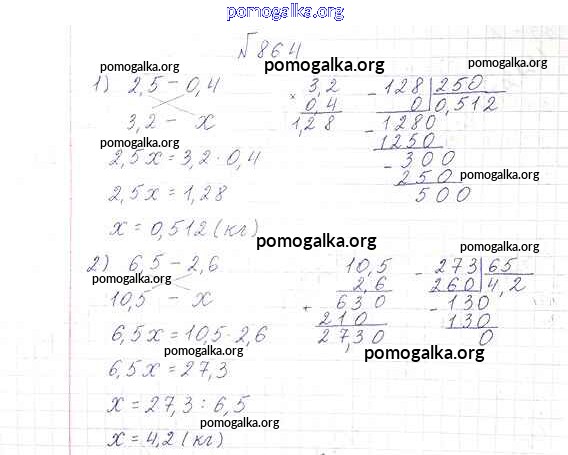 pomogalka.org
№864
pomogalka.org pomogalka.org
1) 2,5 – 0,4
3,2 – x
pomogalka.org
2,5x = 3,2 · 0,4
2,5x = 1,28
x = 0,512 (кг)
× 3,2
0,4
1,28
– 128 | 250
0 | 0,512
– 1280
1250
– 300
250
500
pomogalka.org
pomogalka.org
2) 6,5 – 2,6
pomogalka.org
10,5 – x
6,5x = 10,5 · 2,6
pomogalka.org
6,5x = 27,3
x = 27,3 : 6,5
pomogalka.org
x = 4,2 (кг)
10,5
2,6
+ 630
210
27,30
pomogalka.org
– 273 | 65
260 | 4,2
– 130
130
0
pomogalka.org